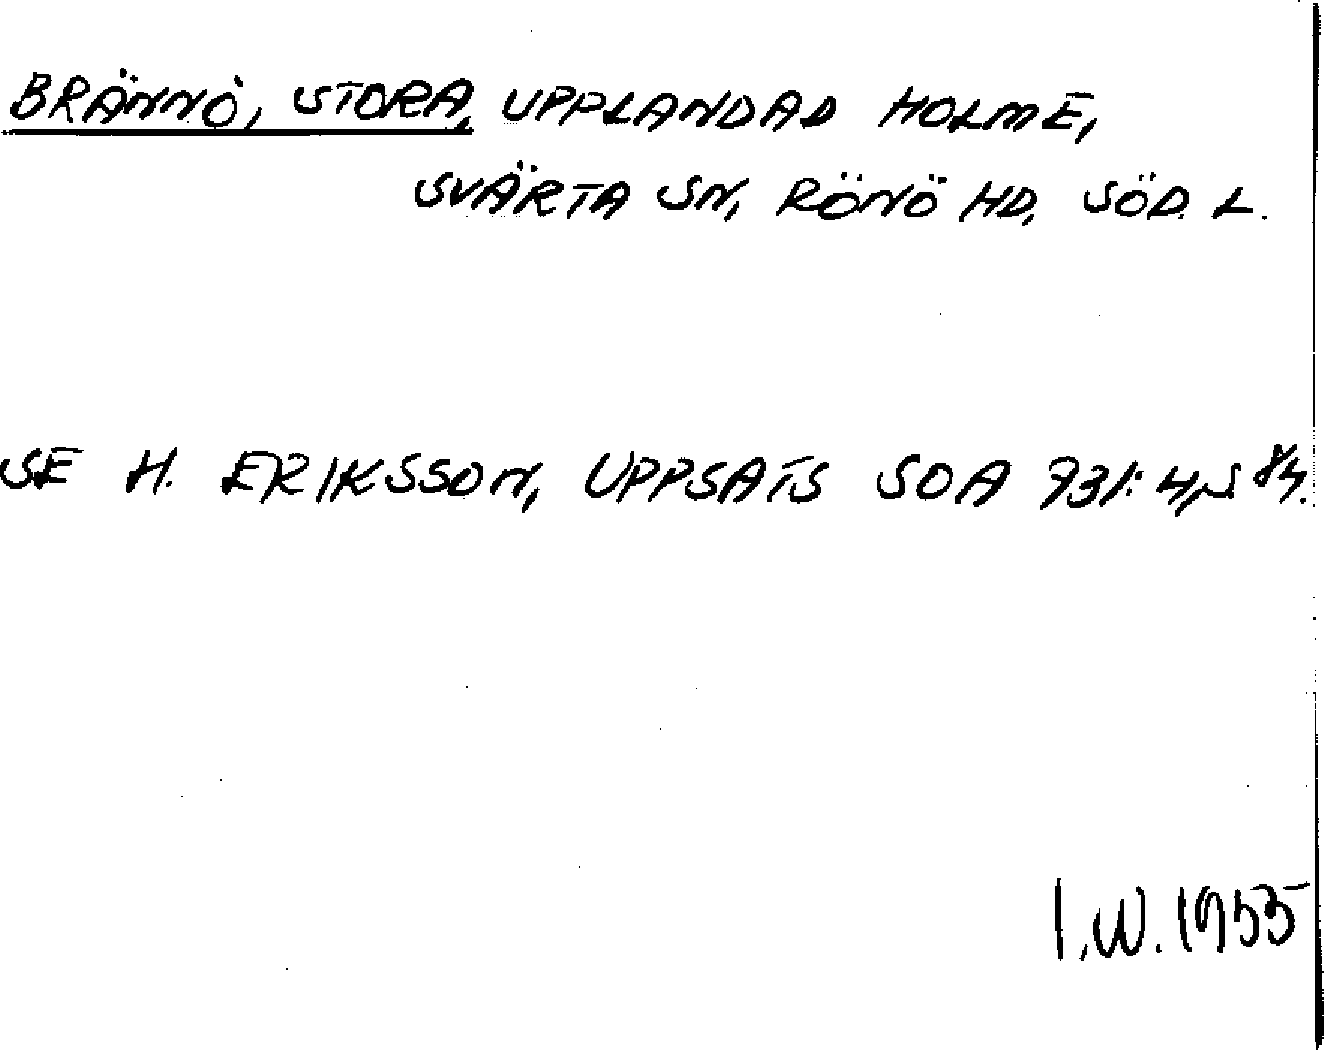 BRÄNNÖ, STORA, UPPLANDAD HOLME,
SVÄRTA SN, RÖNÖ HD, SÖD. L.
SE H. ERIKSSON, UPPSATS SOA 731:4, S 84.
I.W. 1955